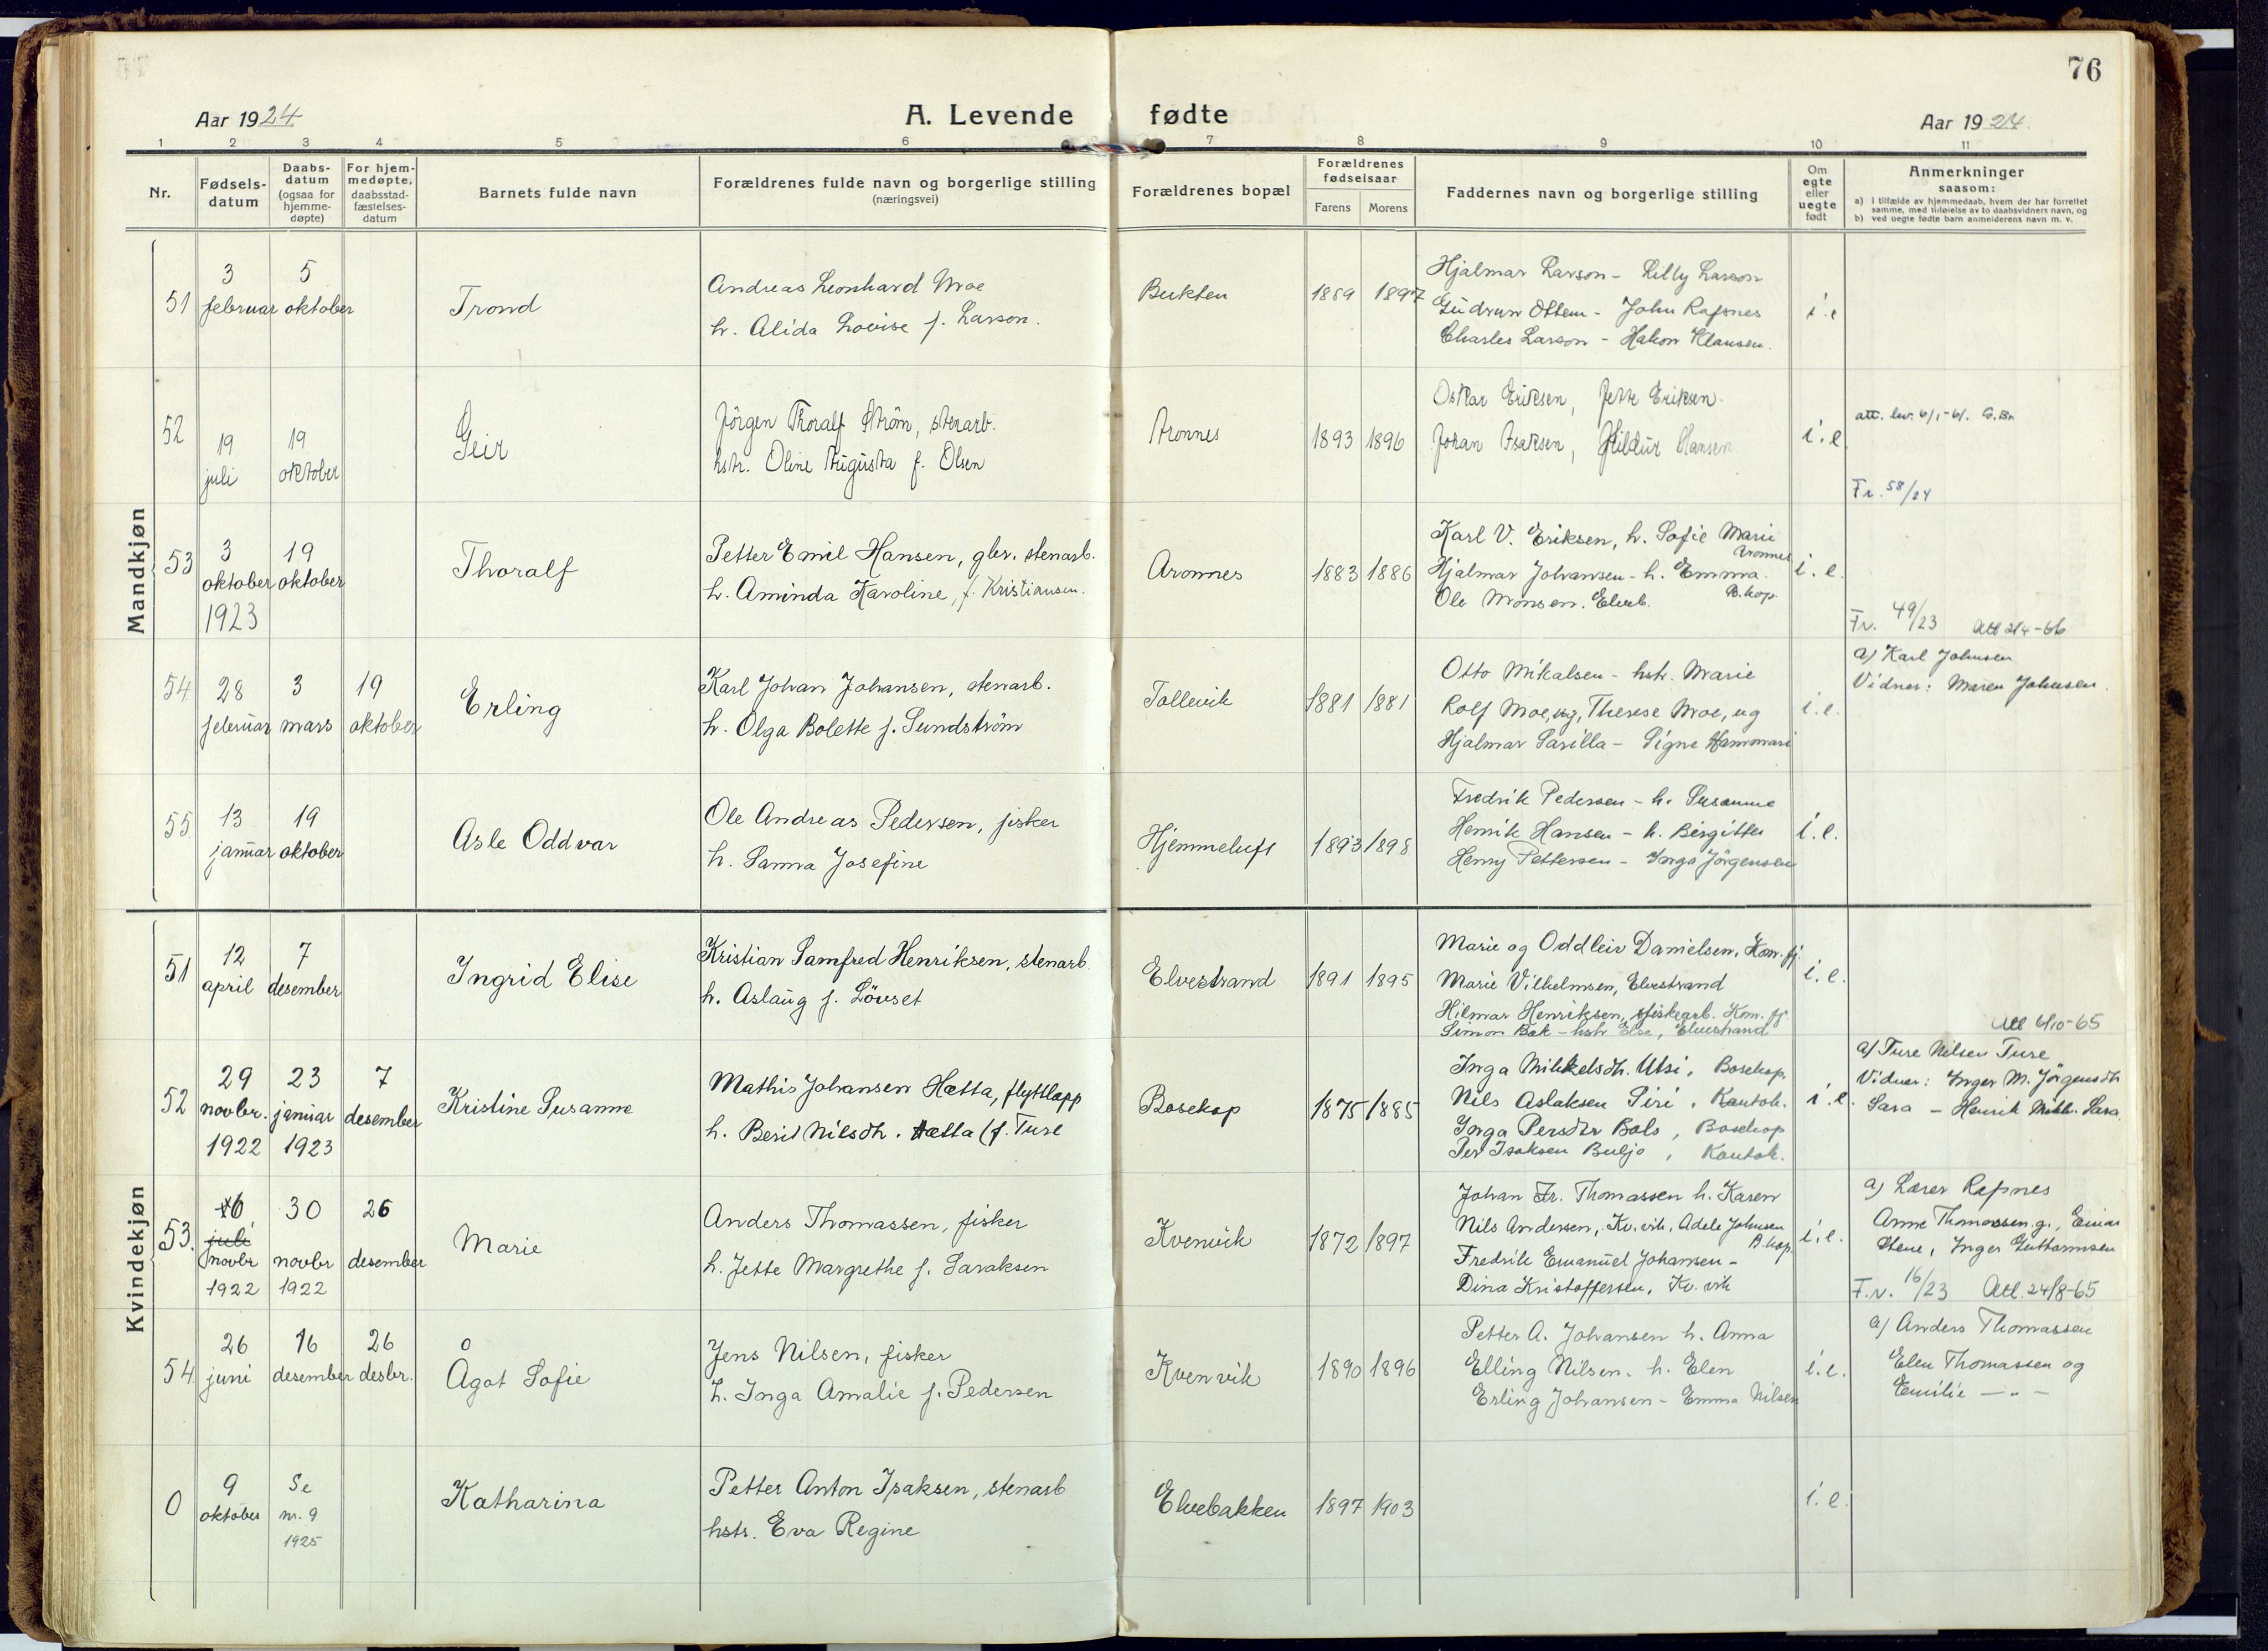 76
Aar 1924
A. Levende fødte
Aar 1924
1 2 3 4 5 6 7 8 9 10 11
Nr.
Fødsels-
datum
Daabs-
datum
(ogsaa for
hjemme-
døpte)
For hjem-
medøpte,
daabsstad-
fæstelses-
datum
Barnets fulde navn
Forældrenes fulde navn og borgerlige stilling
(næringsvei)
Forældrenes bopæl
Forældrenes
fødselsaar
Farens Morens
Faddernes navn og borgerlige stilling
Om
egte
eller
uegte
født
Anmerkninger
saasom:
a) I tilfælde av hjemmedaab, hvem der har forrettet
samme, med tilføielse av to daabsvidners navn, og
b) ved uegte fødte barn anmelderens navn m. v.
Mandkjøn
51
3
februar
5
oktober
Trond
Andreas Leonhard Moe
h. Alida Lovise f. Larson.
Bukten
1889 1897
Hjalmar Larson - Lilly Larson
Gudrun Ottem - John Rafsnes
Charles Larson - Hakon Klausen.
i.e
52
19
juli
19
oktober
Geir
Jörgen Thoralf Ström, stenarb.
hstr. Oline Augusta f. Olsen
Aronnes
1893 1896
Oskar Eriksen, Jette Eriksen
Johan Isaksen, Hildur Hansen
i.e
att. 6/1-61. G.Bn
Fr. 58/24
53
3
oktober
1923
19
oktober
Thoralf
Petter Emil Hansen, gbr. stenarb.
h. Aminda Karoline, f. Kristiansen.
Aronnes
1883 1886
Karl V. Eriksen, h. Sofie Marie
Aronnes
Hjalmar Johansen - h. Emma.
B.kop.
Ole Monsen. Elveb.
i.e.
Fr. 49/23 Att 21/4-66
54
28
februar
3
mars
19
oktober
Erling
Karl Johan Johansen, stenarb.
h. Olga Bolette f. Sundström
Tollevik
1881 1881
Otto Mikalsen - hstr. Marie
Rolf Moe, ug, Therese Moe, ug
Hjalmar Sarilla - Signe Hammari
i.e.
a) Karl Johnsen
Vidner: Maren Johnsen.
55
13
januar
19
oktober
Asle Oddvar
Ole Andreas Pedersen, fisker
h. Sanna Josefine
Hjemmeluft
1893 1898
Fredrik Pedersen - h. Susanne
Henrik Hansen - h. Birgitte
Henry Pettersen - Inga Jörgensen
i.e.
Kvindekjøn
51
12
april
7
desember
Ingrid Elise
Kristian Samfred Henriksen, stenarb
h. Aslaug f. Lövset
Elvestrand
1891 1895
Marie og Oddleiv Danielsen, Kom. fj.
Marie Vilhelmsen, Elvestrand
Hilmar Henriksen, fiskearb. Kom. fj
Simon Bak - hstr Else, Elvestrand
i.e.
Att 4/10-65
52
29
novbr.
1922
23
januar
1923
7
desember
Kristine Susanne
Mathis Johansen Hætta, flyttlapp
h. Berit Nilsdh. Hætta (f. Ture
Bosekop
1875 1885
Inga Mikkelsdh. Utsi, Bosekop.
Nils Aslaksen Siri, Kautok.
Inga Persdtr Bals, Bosekop
Per Isaksen Buljo, Kautok.
i.e.
a) Ture Nilsen Ture
Vidner: Inger M. Jörgensdh
Sara - Henrik Mikk. Sara.
53.
16
juli
novbr
1922
30
novbr
1922
26
desember
Marie
Anders Thomassen, fisker
h. Jette Margrethe f. Saraksen
Kvenvik
1872 1897
Johan Fr. Thomassen h. Karen
Nils Andersen, Kv.vik, Adele Johnsen
B.kop.
Fredrik Emanuel Johansen -
Dina Kristoffersen, Kv. vik
i.e.
a) Lærer Rafsnes
Anne Thomassen g., Einar
Stene, Inger Guttormsen
F.v. 16/23 Att. 24/8-65
54
26
juni
16
desember
26
desbr.
Ågot Sofie
Jens Nilsen, fisker
h. Inga Amalie f. Pedersen
Kvenvik
1890 1896
Petter A. Johansen h. Anna
Elling Nilsen. h. Elen
Erling Johansen - Emma Nilsen
i.e.
a) Anders Thomassen
Elen Thomassen og
Emilie — " —
0
9
oktober
Se
nr. 9
1925
Katharina
Petter Anton Isaksen, stenarb
hstr. Eva Regine
Elvebakken
1897 1903
i.e.